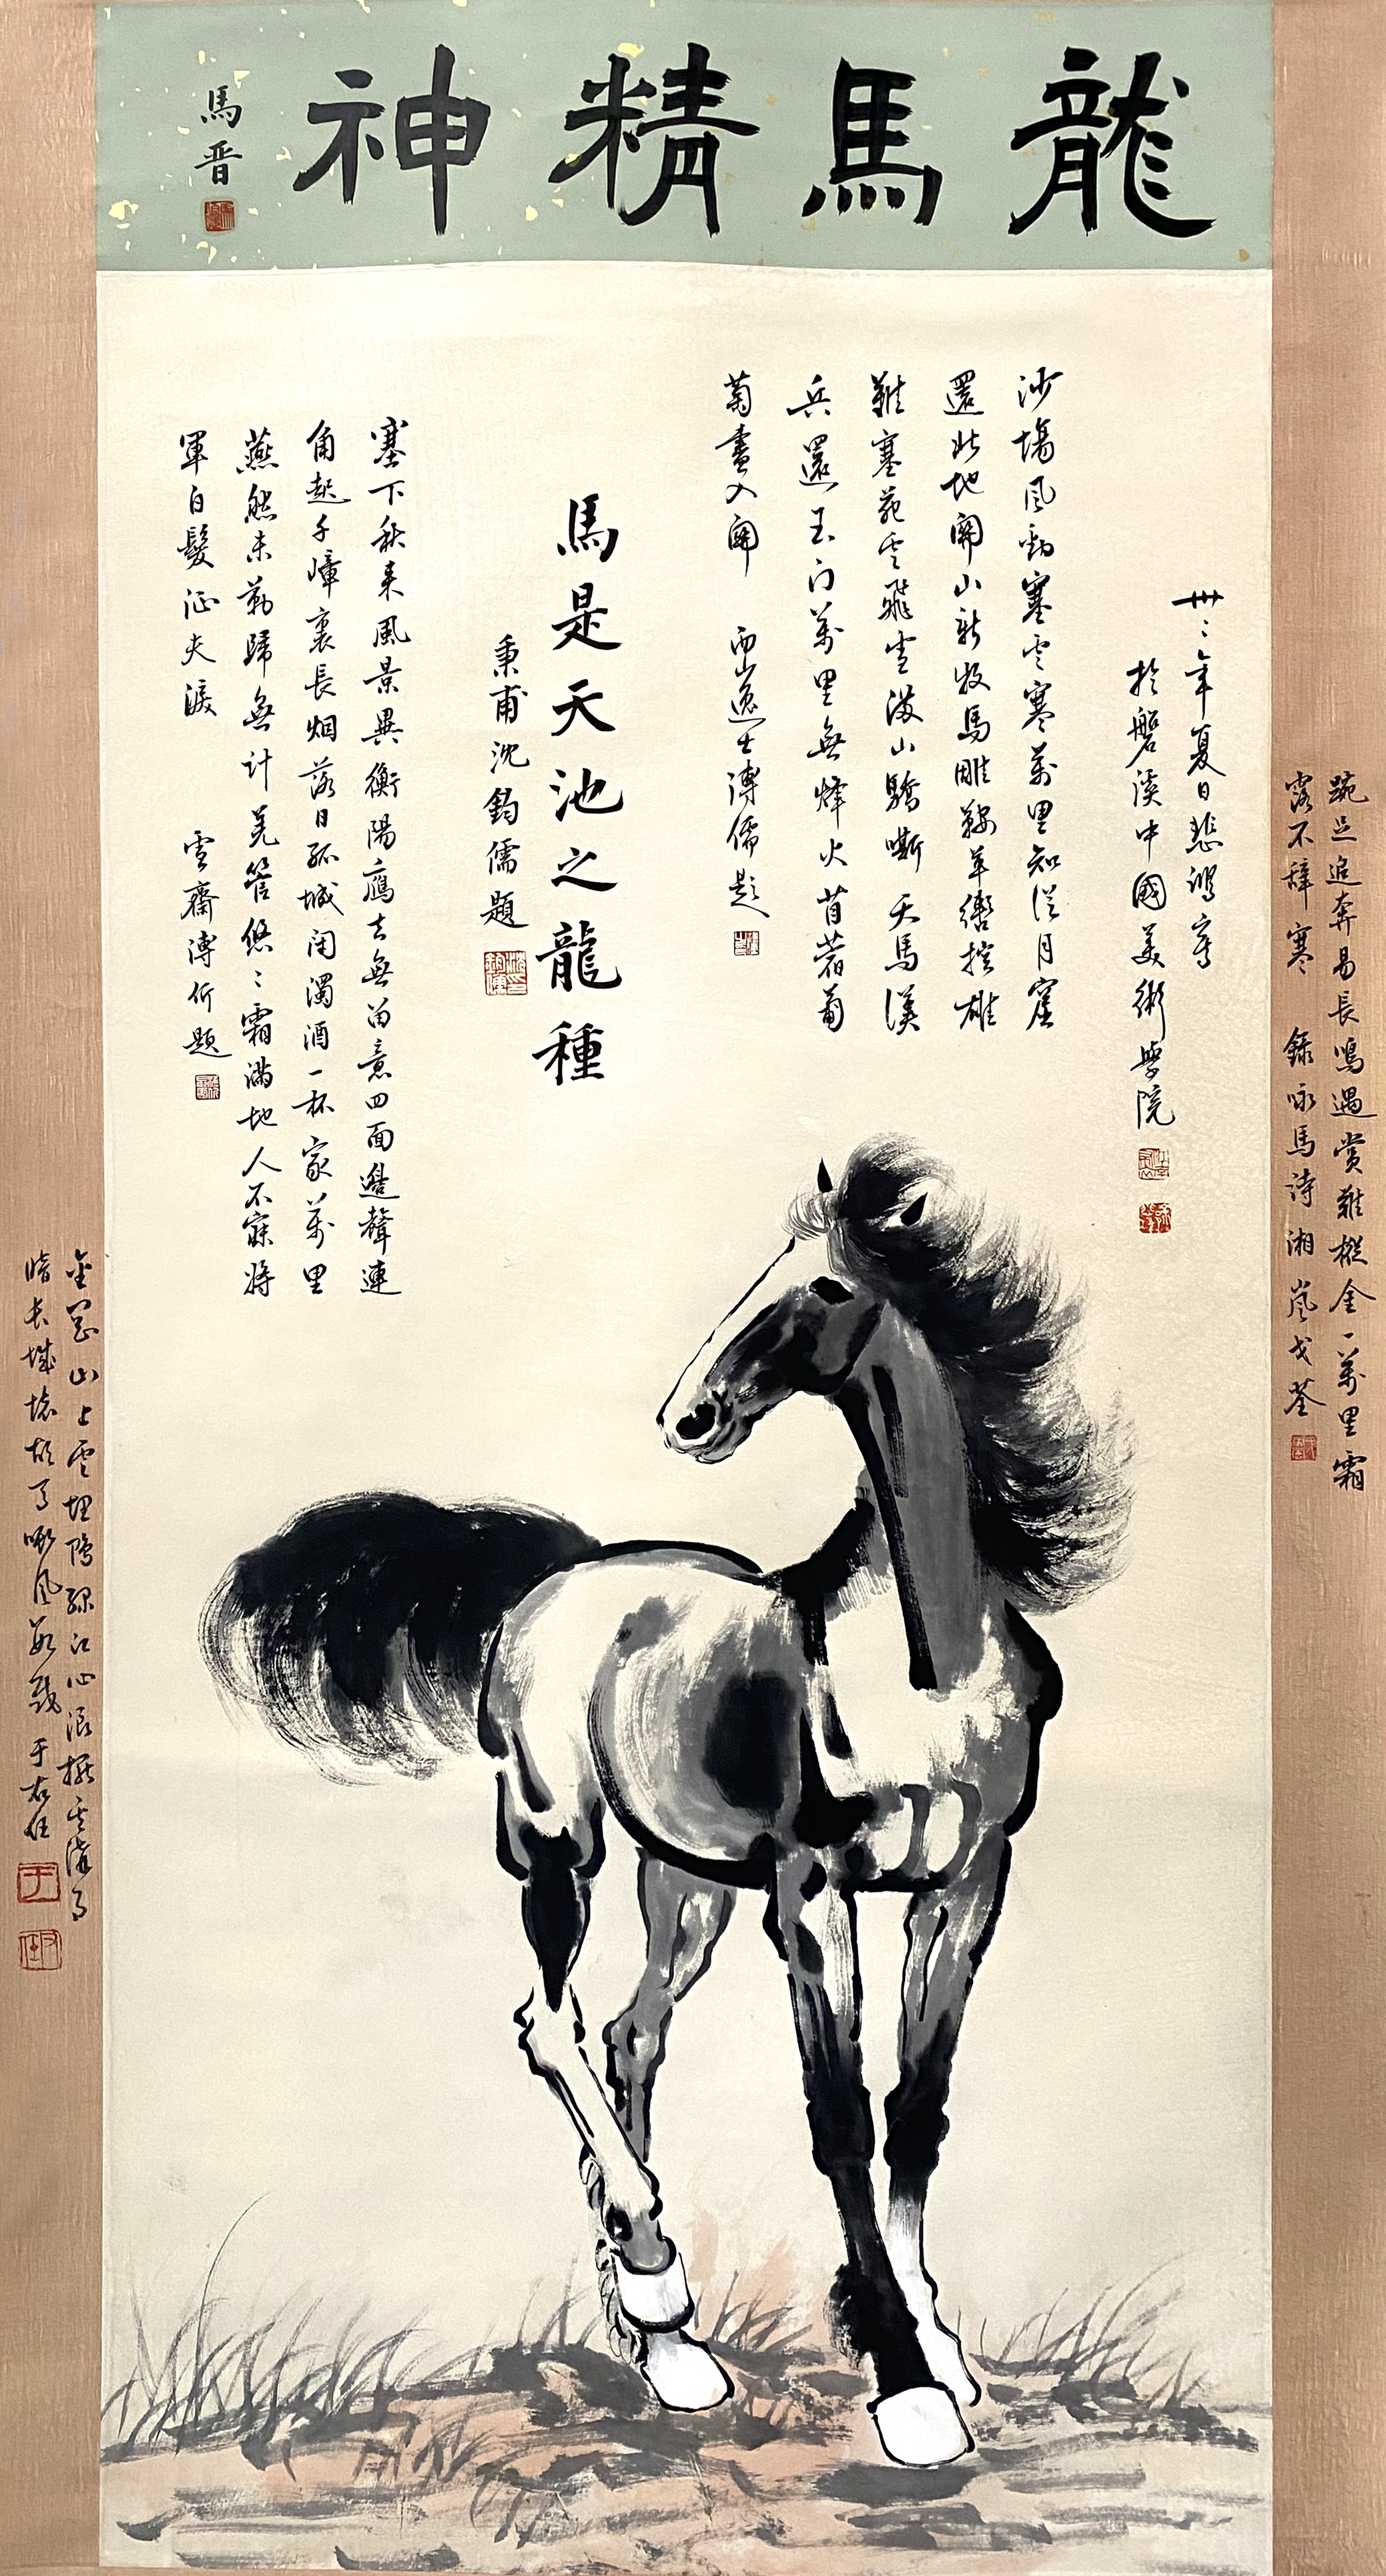 龍馬精神
馬晋
卅二年夏日悲鴻寫
於磐溪中國美術學院
沙場風動塞雲寒萬里知從月窟
還此地關山新牧馬雕鞍羊轡控雄
難塞苑雲飛雪滿山驕嘶天馬漢
兵還玉门萬里無烽火苜蓿葡
萄盡入關 西山逸士溥儒題
馬是天池之龍種
秉甫沈鈞儒題
塞下秋来風景異衡陽鴈去無留意四面邊聲連
角起千嶂裏長烟落日孤城闭濁酒一杯家萬里
燕然未勒歸無计羌管悠〻霜滿地人不寐将
軍白髮征夫淚 雪齋溥伒題
踠足追奔易長鳴遇賞難摐金一萬里霜
露不辞寒 錄咏馬詩湘嵐戈荃
山上雲埋 江心浪撼
暗长城 风 于右任